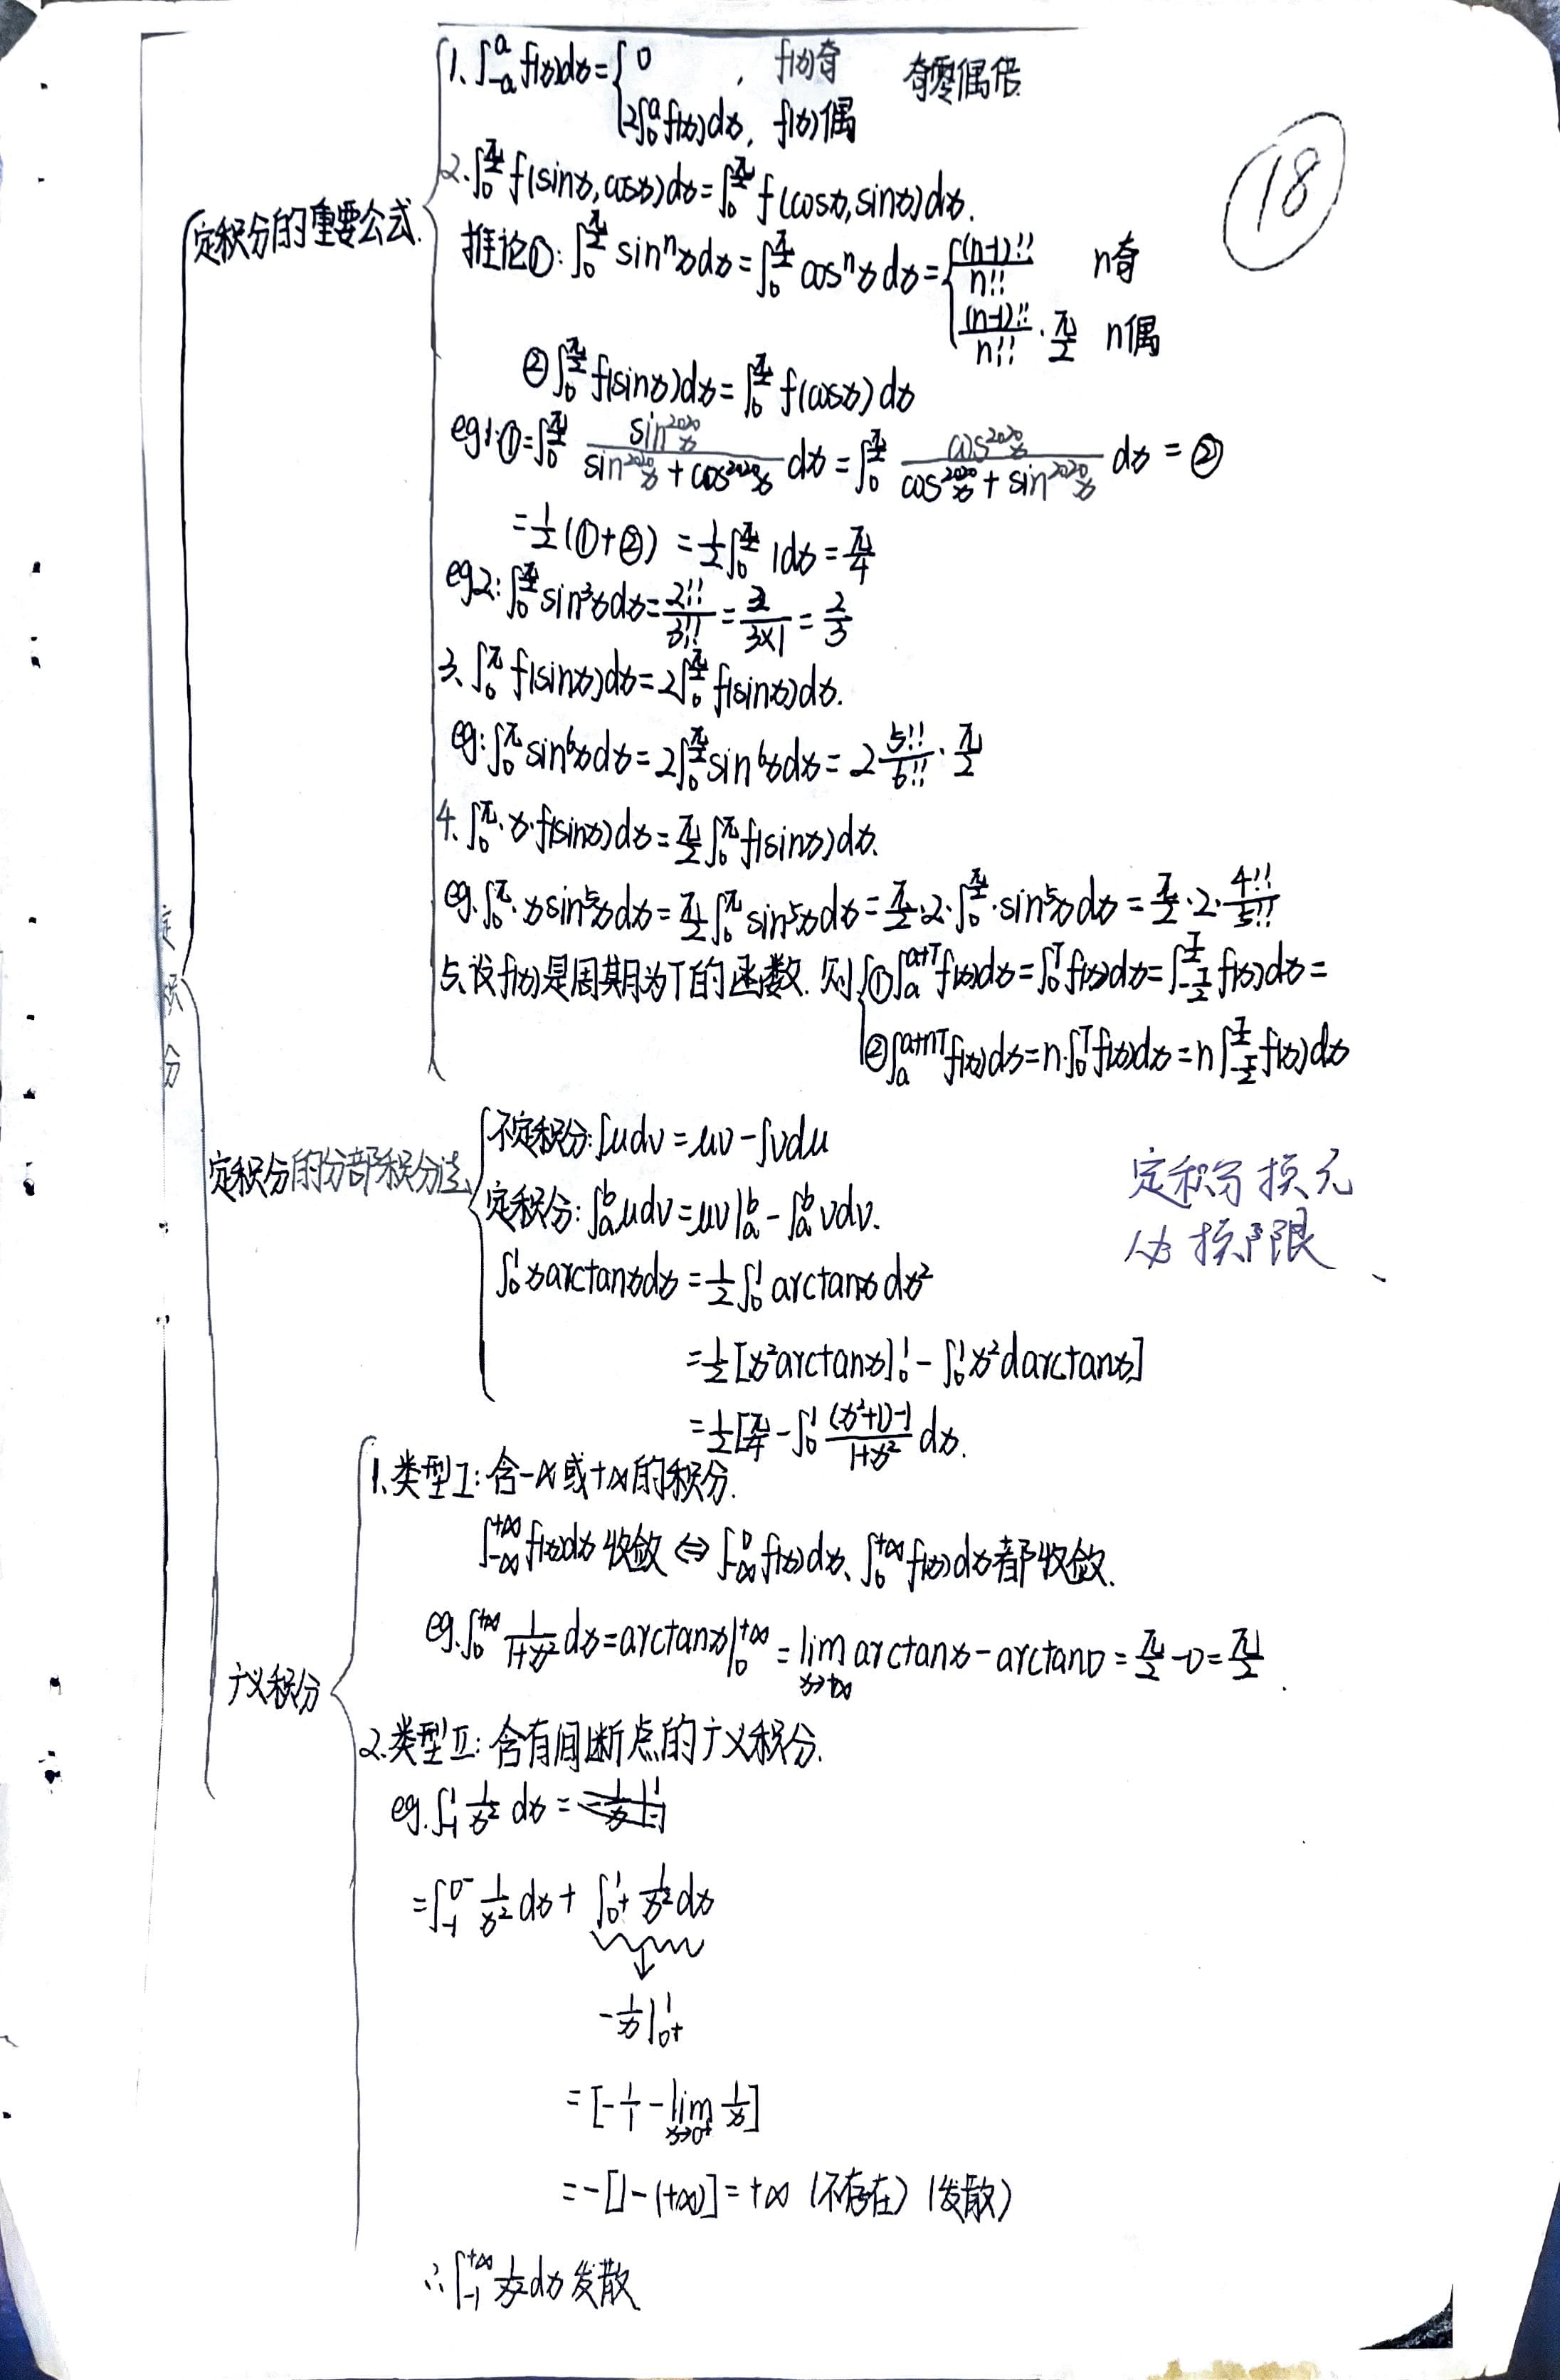 18
定积分
定积分的重要公式.
1、∫_{-a}^{a} f(x)dx = { 0 , f(x)奇 奇零偶倍.
2∫_0^a f(x)dx, f(x)偶
2.∫_0^{π/2} f(sinx,cosx)dx = ∫_0^{π/2} f(cosx,sinx)dx.
推论①: ∫_0^{π/2} sin^n x dx = ∫_0^{π/2} cos^n x dx = { (n-1)!!/n!! n奇
(n-1)!!/n!! · π/2 n偶
② ∫_0^{π/2} f(sinx)dx = ∫_0^{π/2} f(cosx)dx
eg1:① = ∫_0^{π/2} sin^{2020}x/(sin^{2020}x + cos^{2020}x) dx = ∫_0^{π/2} cos^{2020}x/(cos^{2020}x + sin^{2020}x) dx = ②
= 1/2(①+②) = 1/2 ∫_0^{π/2} 1dx = π/4
eg2: ∫_0^{π/2} sin³x dx = 2!!/3!! = 2/(3×1) = 2/3
3、∫_0^π f(sinx)dx = 2∫_0^{π/2} f(sinx)dx.
eg: ∫_0^π sin⁶x dx = 2∫_0^{π/2} sin⁶x dx = 2 5!!/6!! · π/2
4、∫_0^π · x·f(sinx)dx = π/2 ∫_0^π f(sinx)dx.
eg. ∫_0^π · x sin⁵x dx = π/2 ∫_0^π sin⁵x dx = π/2 · 2 · ∫_0^{π/2} · sin⁵x dx = π/2 · 2 · 4!!/5!!
5、设f(x)是周期为T的函数. 则 { ① ∫_a^{a+T} f(x)dx = ∫_0^T f(x)dx = ∫_{-T/2}^{T/2} f(x)dx =
② ∫_a^{a+nT} f(x)dx = n·∫_0^T f(x)dx = n∫_{-T/2}^{T/2} f(x)dx
定积分的分部积分法
不定积分: ∫udv = uv - ∫vdu
定积分: ∫_a^b udv = uv|_a^b - ∫_a^b vdv.
定积分换元
必换限
∫_0^1 x arctanx dx = 1/2 ∫_0^1 arctanx dx²
= 1/2 [x² arctanx|_0^1 - ∫_0^1 x² d arctanx]
= 1/2 [π/4 - ∫_0^1 ((x²+1)-1)/(1+x²) dx.
广义积分
1、类型I: 含-∞或+∞的积分.
∫_{-∞}^{+∞} f(x)dx 收敛 ⇔ ∫_{-∞}^0 f(x)dx、∫_0^{+∞} f(x)dx 都收敛.
eg. ∫_0^{+∞} 1/(1+x²) dx = arctanx|_0^{+∞} = lim_{x→+∞} arctanx - arctan0 = π/2 - 0 = π/2.
2、类型II: 含有间断点的广义积分.
eg. ∫_{-1}^1 1/x² dx = -1/x|_{-1}^1
= ∫_{-1}^{0-} 1/x² dx + ∫_{0+}^1 1/x² dx
↓
-1/x|_{0+}^1
= [-1/1 - lim_{x→0+} 1/x]
= -[1-(+∞)] = +∞ (不存在) (发散)
∴ ∫_{-1}^{+∞} 1/x² dx 发散